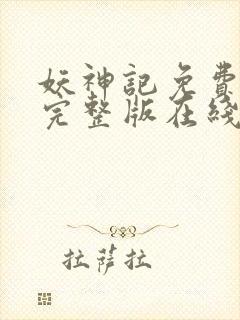 妖神記免費
完整版在綫
拉薩拉